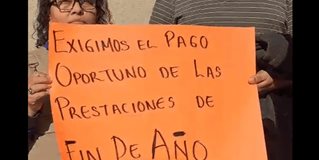 EXIGIMOS EL PAGO
OPORTUNO DE LAS
PRESTACIONES DE
FIN DE AÑO